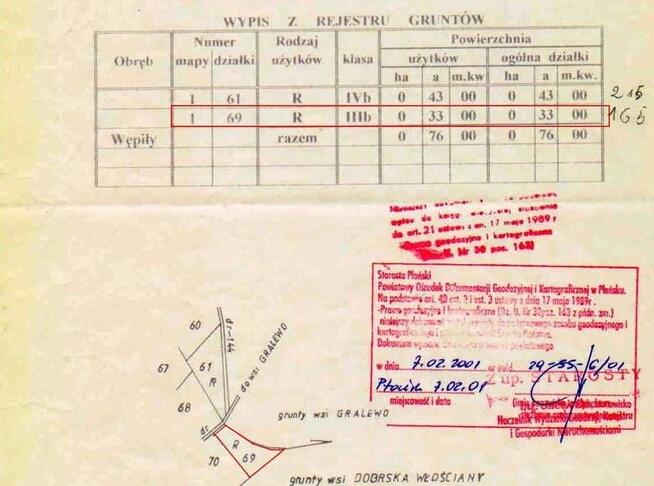 WYPIS Z REJESTRU GRUNTÓW
Obręb Numer mapy działki Rodzaj użytków klasa Powierzchnia
użytków ogólna działki
ha a m.kw ha a m.kw.
1 61 R IVb 0 43 00 0 43 00 215
1 69 R IIIb 0 33 00 0 33 00 165
Wępiły razem 0 76 00 0 76 00
do art. 21 z dn. 17 maja 1989 r
geodezyjne i kartograficzne
Nr 30 poz. 163)
Starosta Płoński
Powiatowy Ośrodek Dokumentacji Geodezyjnej i Kartograficznej w Płońsku.
Na podstawie art. 40 ust. 3 ustawy z dnia 17 maja 1989r.
-Prawo geodezyjne i kartograficzne (Dz. U. Nr 30 poz. 163 z późn. zm.)
niniejszy dokument zasobu geodezyjnego i
w dniu 7.02.2001
Płońsk 7.02.01
miejscowość i data
Z up. STAROSTY
Naczelnik Wydziału Geodezji, Katastru
i Gospodarki Nieruchomościami
60
dr-144
do wsi GRALEWO
67
61
R
68
grunty wsi GRALEWO
dr
R
70
69
grunty wsi DOBRSKA WŁOŚCIANY